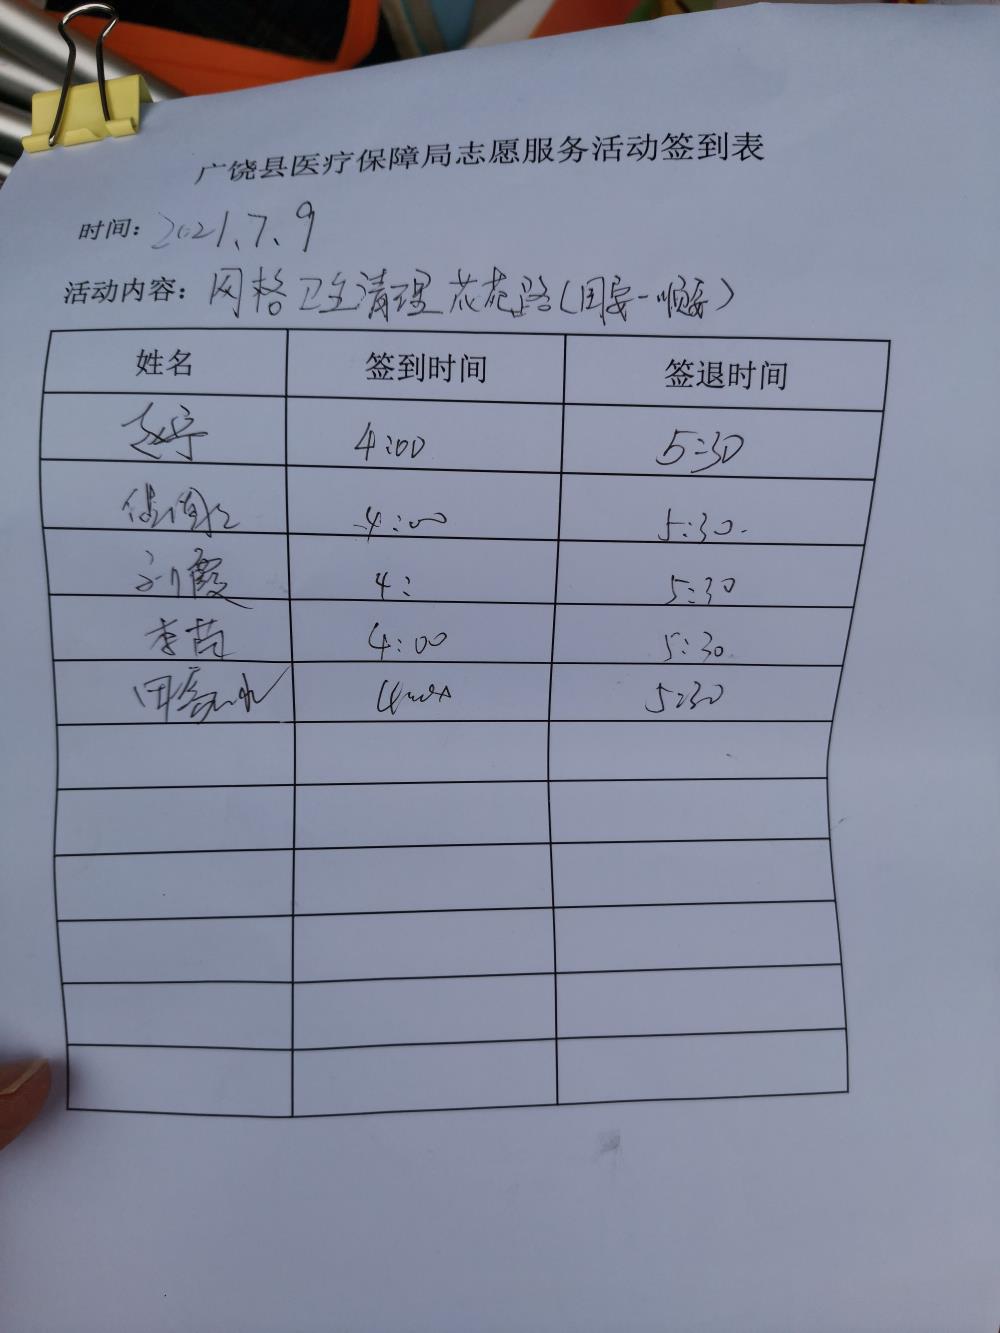 广饶县医疗保障局志愿服务活动签到表
时间：2021.7.9
活动内容：网格卫生清理 花苑路（国安-顺安）
姓名 签到时间 签退时间
赵宁 4:00 5:30
4:00 5:30
刘霞 4: 5:30
李苗 4:00 5:30
5:30